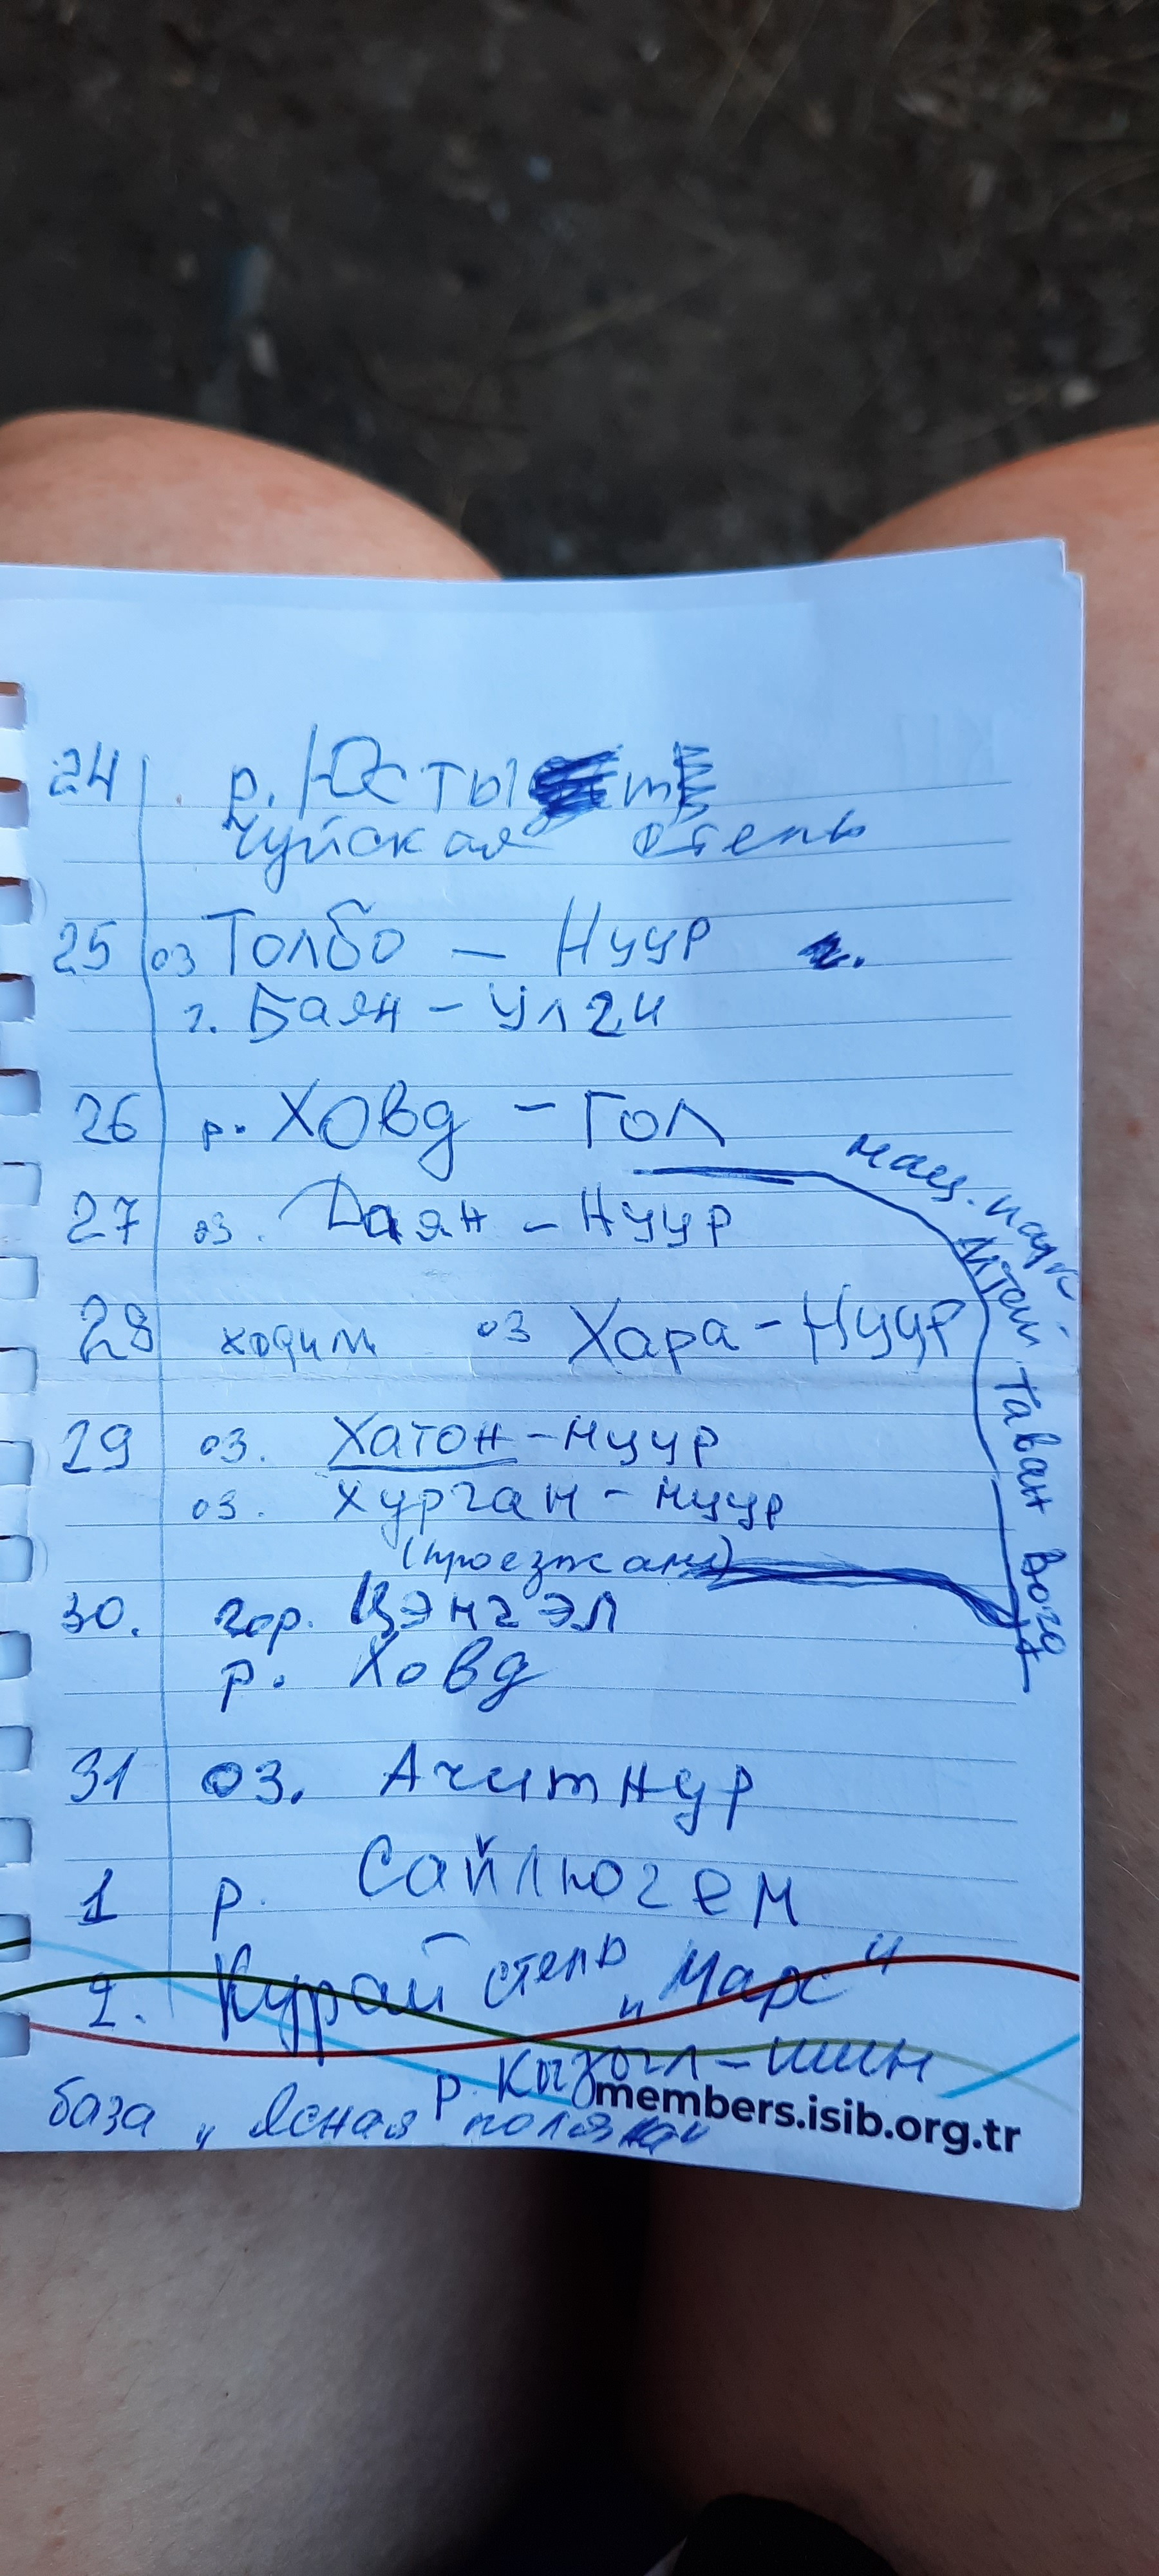 24 р. Юстыт
Чуйская степь
25 оз Толбо - Нуур г.
г. Баян - Улги
26 р. Ховд - Гол
27 оз. Даян - Нуур
28 ходим оз Хара - Нуур
29 оз. Хатон - нуур
оз. Хурган - нуур
(проезжаем)
30. гор. Цэнгэл
р. Ховд
нац. парк
Алтай Таван Богд
31 оз. Ачитнур
1 р. Сайлюгем
2. Курай степь „Марс"
р. Кызыл - шин
база „Ясная поляна"
members.isib.org.tr